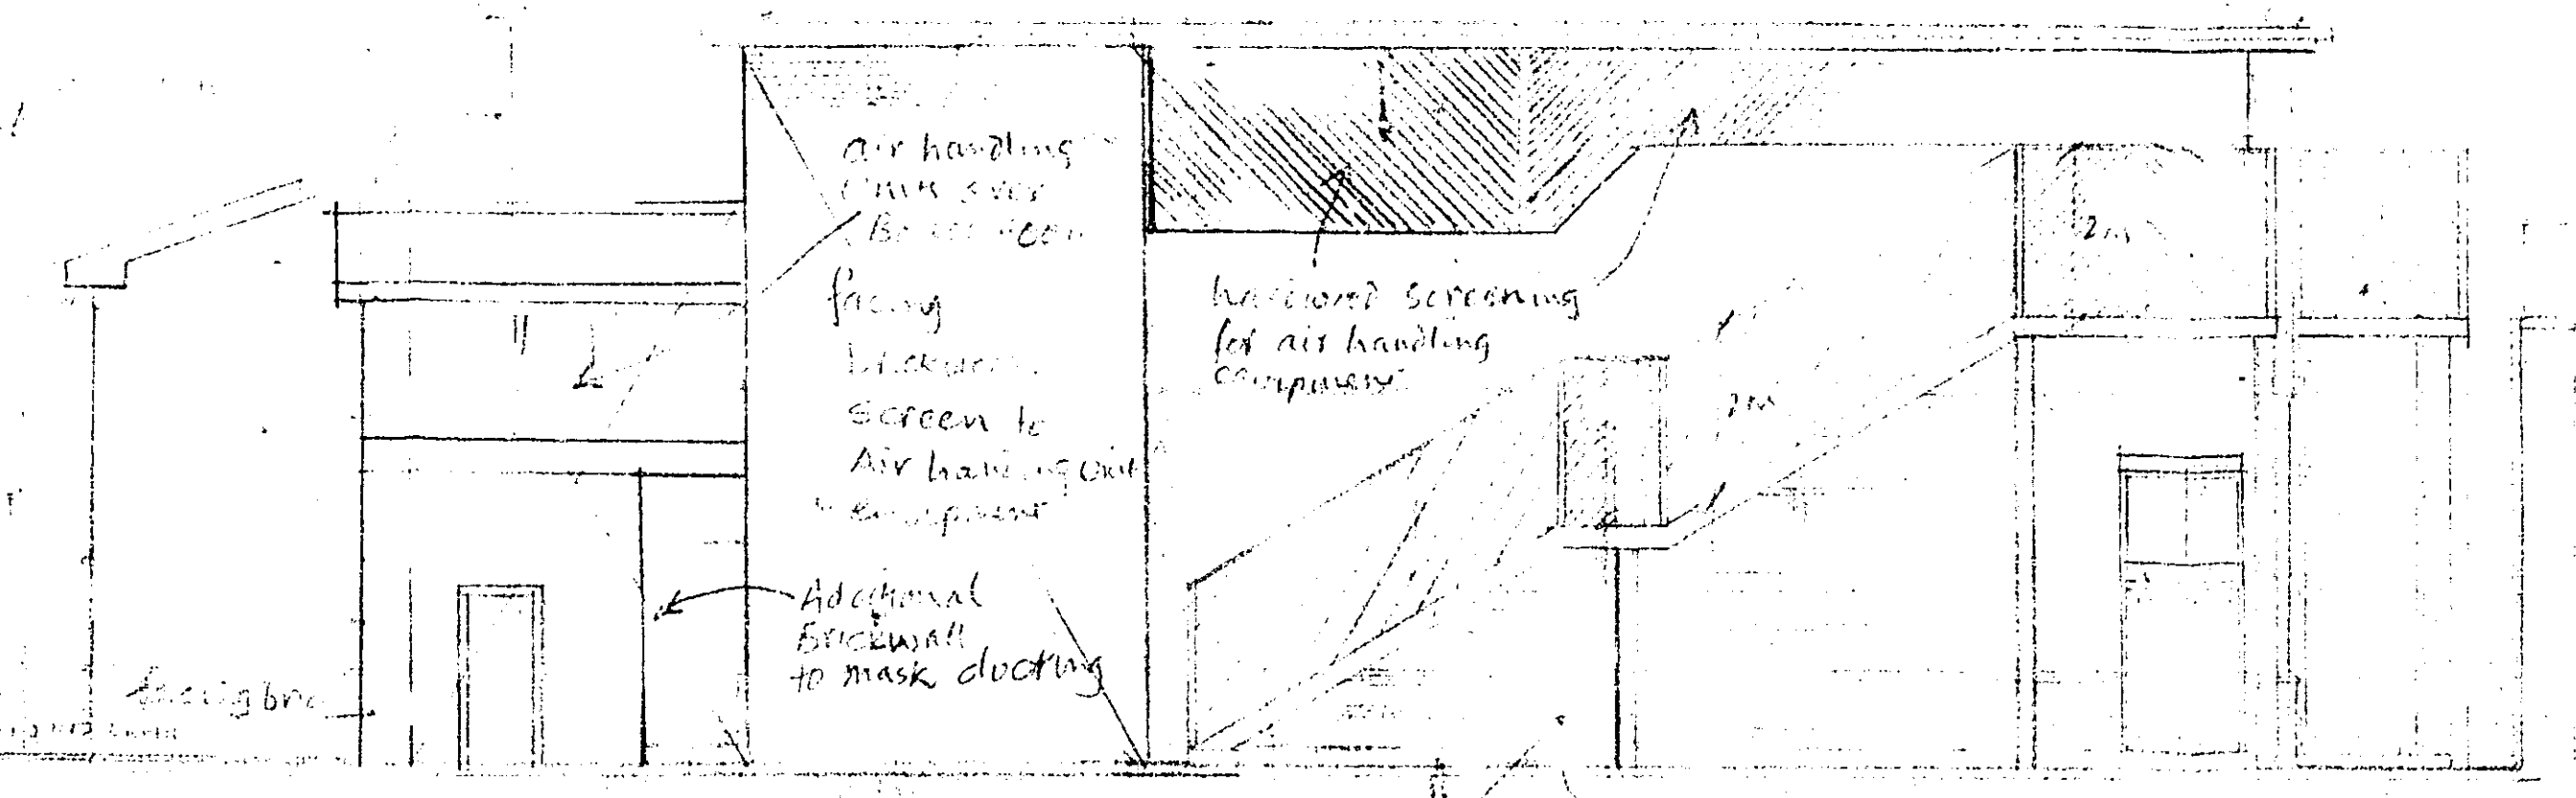 air handling
Units over
facing
brickwork
screen to
Air handling Unit
equipment
hardwood screening
for air handling
equipment
2m
2m
Additional
Brickwall
to mask ducting
facing bri